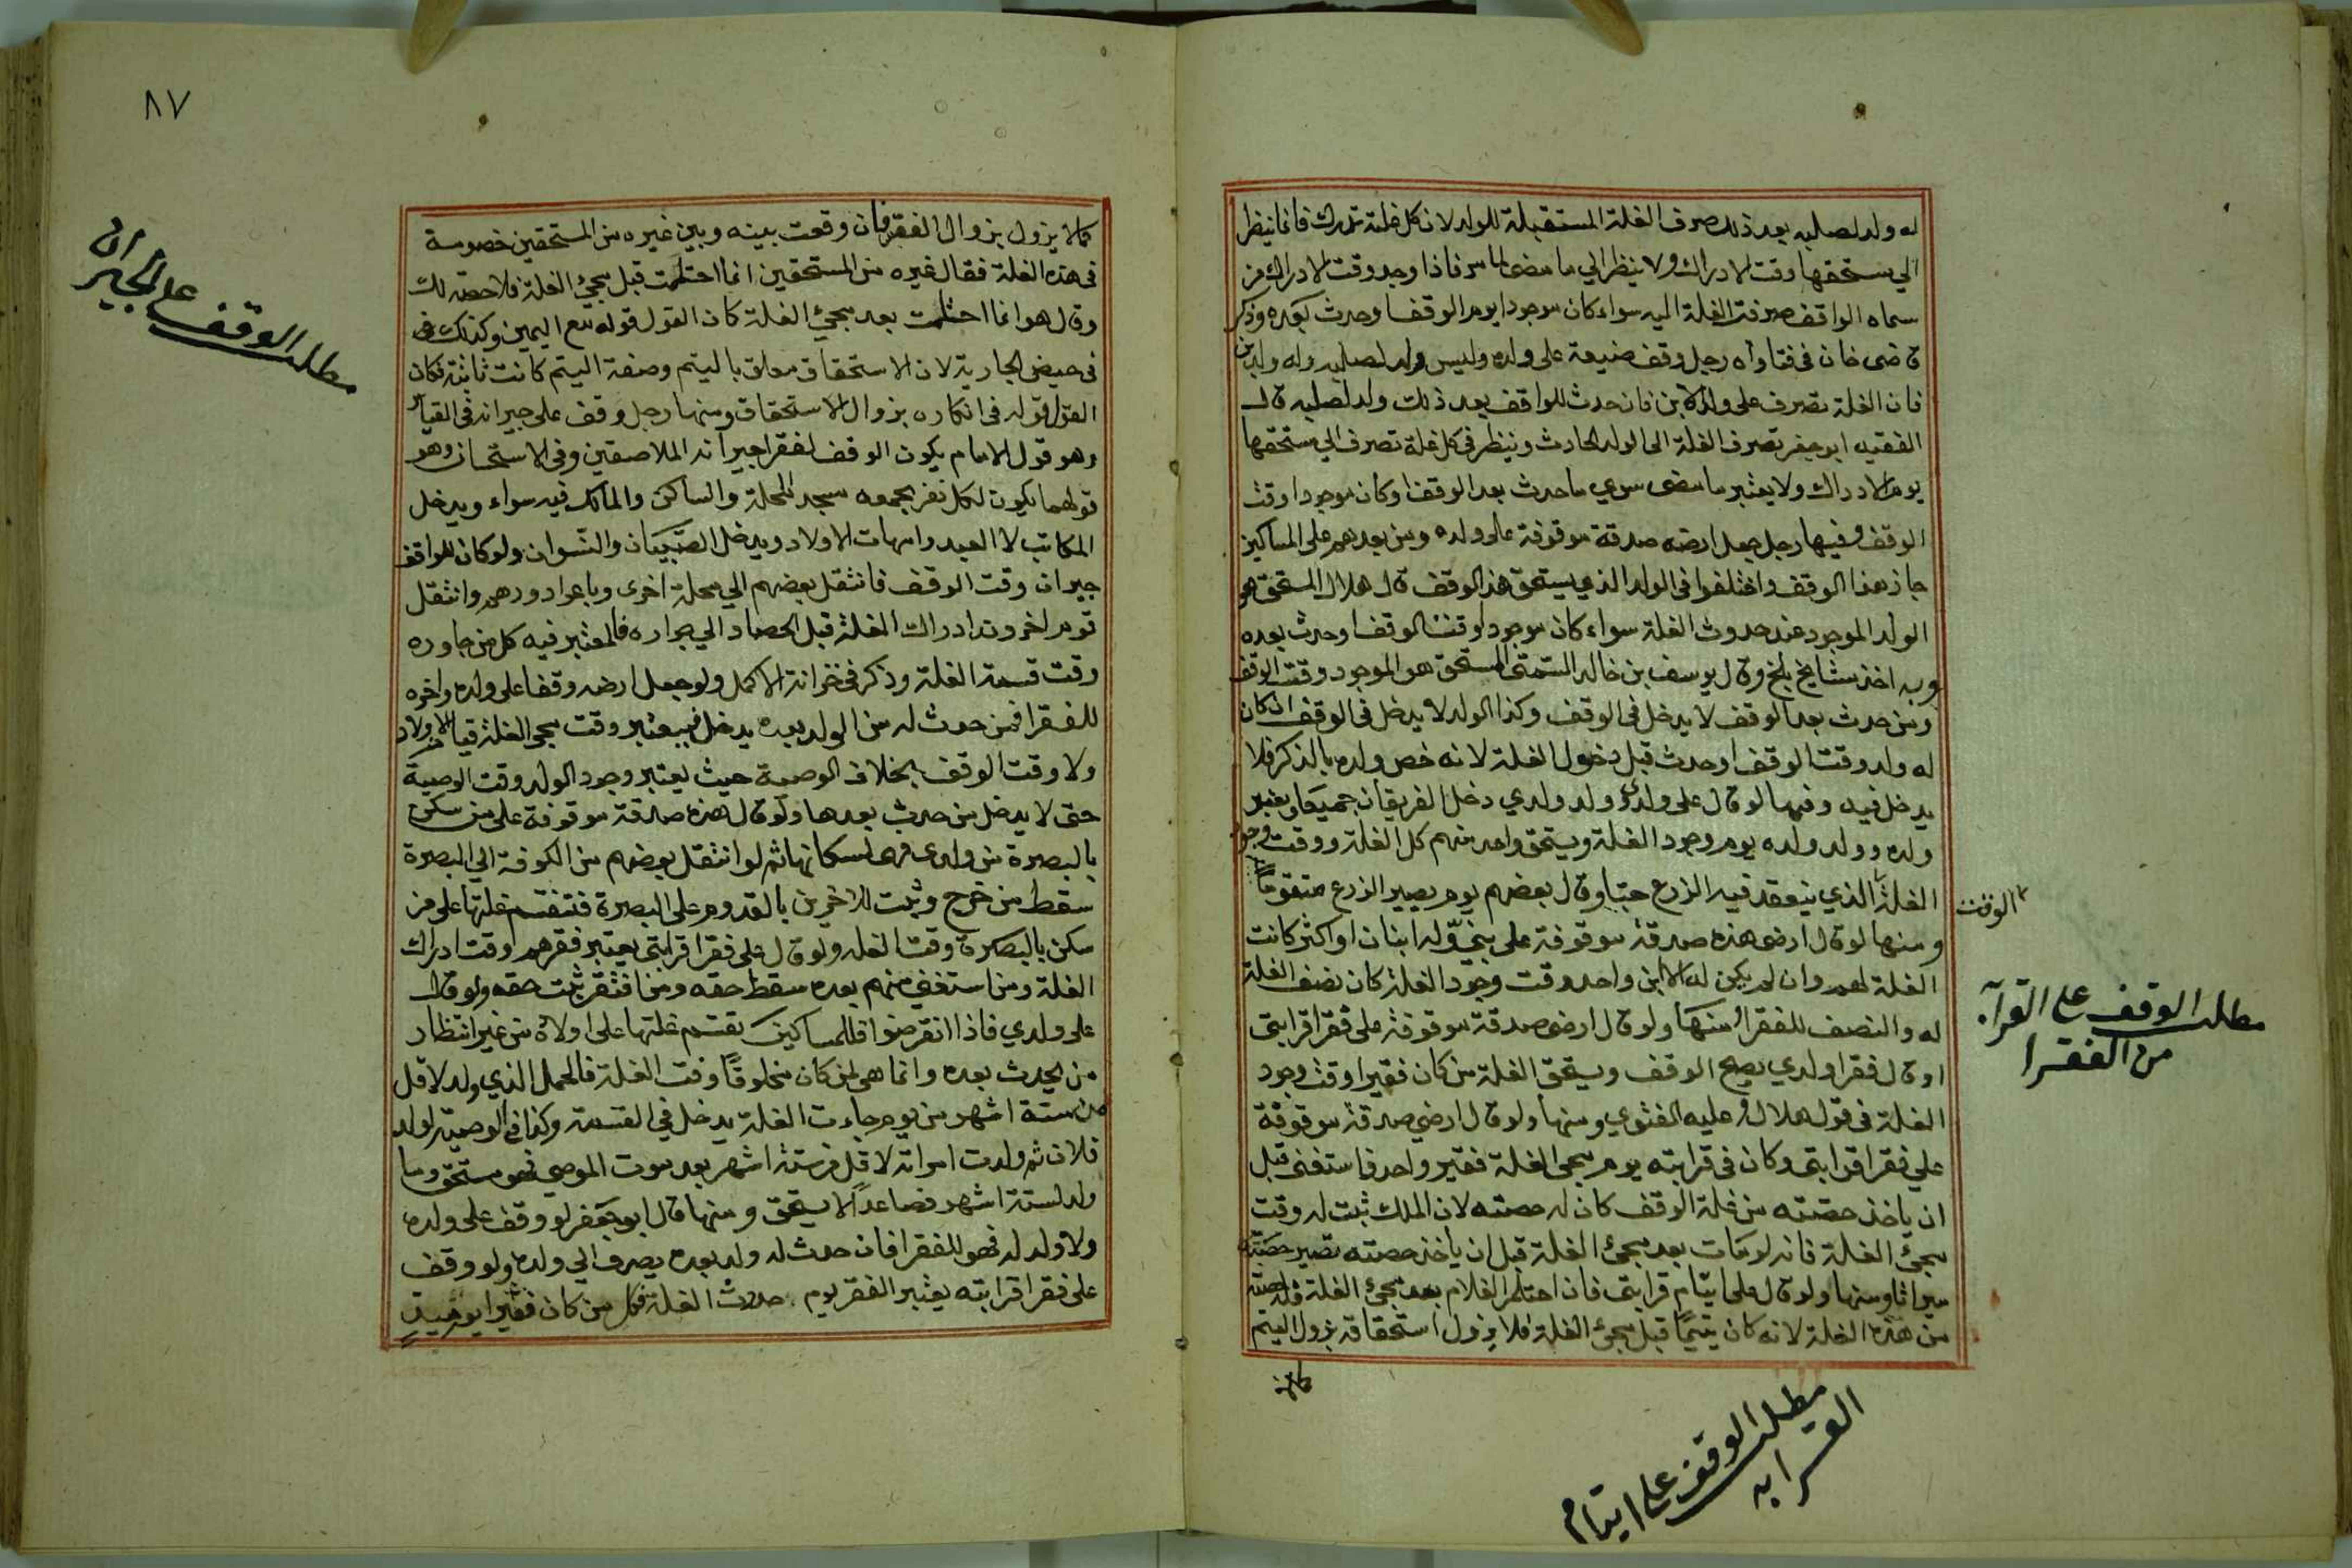 له ولد لصلبه بعد ذلك صرف الغلة المستقبلة للولد لان كل غلة تدرك فانما ينظر
الي مستحقها وقت الادراك ولا ينظر الي ما مضى لما مر فاذا وجد وقت الادراك من
سماه الواقف صرفت الغلة اليه سواء كان موجودا يوم الوقف او حدث بعده وذكر
قاضى خان فى فتاواه رجل وقف ضيعة على ولده وليس له ولد لصلبه وله ولد ابن
فان الغلة تصرف على ولد الابن فان حدث للواقف بعد ذلك ولد لصلبه قال
الفقيه ابو جعفر تصرف الغلة الى الولد الحادث وينظر فى كل غلة تصرف الي مستحقها
يوم الادراك ولا يعتبر ما مضى سوي ما حدث بعد الوقف او كان موجودا وقت
الوقف وفيها رجل جعل ارضه صدقة موقوفة على ولده ومن بعدهم على المساكين
جاز هذا الوقف واختلفوا فى الولد الذي يستحق هذا الوقف قال هلال المستحق هو
الولد الموجود عند حدوث الغلة سواء كان موجودا وقت الوقف او حدث بعده
وبه اخذ مشايخ بلخ وقال يوسف بن خالد السمتى المستحق هو الموجود وقت الوقف
ومن حدث بعد الوقف لا يدخل فى الوقف وكذا الولد لا يدخل فى الوقف ان كان
له ولد وقت الوقف او حدث قبل دخول الغلة لانه خص ولده بالذكر فلا
يدخل فيه وفيها لو قال على ولدي وولد ولدي دخل الفريقان جميعا ويعتبر
ولده وولد ولده يوم وجود الغلة ويستحق واحد منهم كل الغلة ووقت وجود
الغلة الذي ينعقد فيه الزرع حبّا وقال بعضهم يوم يصير الزرع متقوماً
الوقت
ومنها لو قال ارضى هذه صدقة موقوفة على بنيّ وله ابنان او اكثر كانت
الغلة لهم وان لم يكن له الا ابن واحد وقت وجود الغلة كان نصف الغلة
له والنصف للفقراء ومنها ولو قال ارضى صدقة موقوفة على فقراقرابتى
او قال فقرا ولدي يصح الوقف ويستحق الغلة من كان فقيرا وقت وجود
الغلة فى قول هلال وعليه الفتوي ومنها ولو قال ارضي صدقة موقوفة
علي فقراقرابتى وكان فى قرابته يوم مجى الغلة فقير واحد فاستغنى قبل
ان ياخذ حصته من غلة الوقف كان له حصته لان الملك ثبت له وقت
مجئ الغلة فانه لو مات بعد مجئ الغلة قبل ان ياخذ حصته تصير حصته
ميراثا ومنها ولو قال على ايتام قرابتى فان احتلم الغلام بعد مجئ الغلة فله حصته
من هذه الغلة لانه كان يتيمًا قبل مجئ الغلة فلا يزول استحقاقه بزول اليتم
كما لا
مطلب الوقف على القرآبه
من الفقرا
مطلب الوقف على ايتام
القرابه
٨٧
كمالا يزول بزوال الفقر فان وقعت بينه وبين غيره من المستحقين خصومة
فى هذه الغلة فقال غيره من المستحقين انما احتلمت قبل مجئ الغلة فلا حصة لك
وقال هو انما احتلمت بعد مجئ الغلة كان القول قوله مع اليمين وكذلك فى
فى حيض الجارية لان الاستحقاق معلق باليتم وصفة اليتم كانت ثابتة فكان
القول قوله فى انكاره بزوال الاستحقاق ومنها رجل وقف على جيرانه فى القياس
وهو قول الامام يكون الوقف لفقرا جيرانه الملاصقين وفى الاستحسان وهو
قولهما يكون لكل نفر يجمعه مسجد المحلة والساكن والمالك فيه سواء ويدخل
المكاتب لا العبد وامهات الاولاد ويدخل الصبيان والنسوان ولو كان للواقف
جيران وقت الوقف فانتقل بعضهم الي محلة اخرى وباعوا دورهم وانتقل
قوم اخرون بدا ادراك الغلة قبل الحصاد الي جواره فالمعتبر فيه كل من جاوره
وقت قسمة الغلة وذكر فى خزانة الاكمل ولو جعل ارضه وقفا على ولده واخره
للفقرا فمن حدث له من الولد بعده يدخل فيعتبر وقت مجى الغلة قيام الاولاد
ولا وقت الوقف بخلاف الوصية حيث يعتبر وجود الولد وقت الوصية
حتى لا يدخل من حدث بعدها ولو قال هذه صدقة موقوفة على من سكن
بالبصرة من ولدى فهى لسكانها ثم لو انتقل بعضهم من الكوفة الي البصرة
سقط من خرج وثبت للاخرين بالقدوم على البصرة فتقسم غلتها على من
سكن بالبصرة وقت الغلة ولو قال على فقرا قرابتى يعتبر فقرهم وقت ادراك
الغلة ومن استغنى منهم بعده سقط حقه ومن افتقر ثبت حقه ولو قال
على ولدي فاذا انقرضوا فللمساكين تقسم غلتها على اولاده من غير انتظار
من يحدث بعده وانما هى لمن كان مخلوقًا وقت الغلة فالحمل الذي ولد لاقل
من ستة اشهر من يوم جاءت الغلة يدخل في القسمة وكذا فى الوصية لولد
فلان ثم ولدت امراته لاقل من ستة اشهر بعد موت الموصي فهو مستحق وما
ولد لستة اشهر فصاعداً لا يستحق ومنها قال ابو جعفر لو وقف على ولده
ولا ولد له فهو للفقرا فان حدث له ولد بعده يصرف الي ولده ولو وقف
على فقرا قرابته يعتبر الفقر يوم حدوث الغلة فكل من كان فقيرا يومئيذ
مطلب الوقف على الجيران